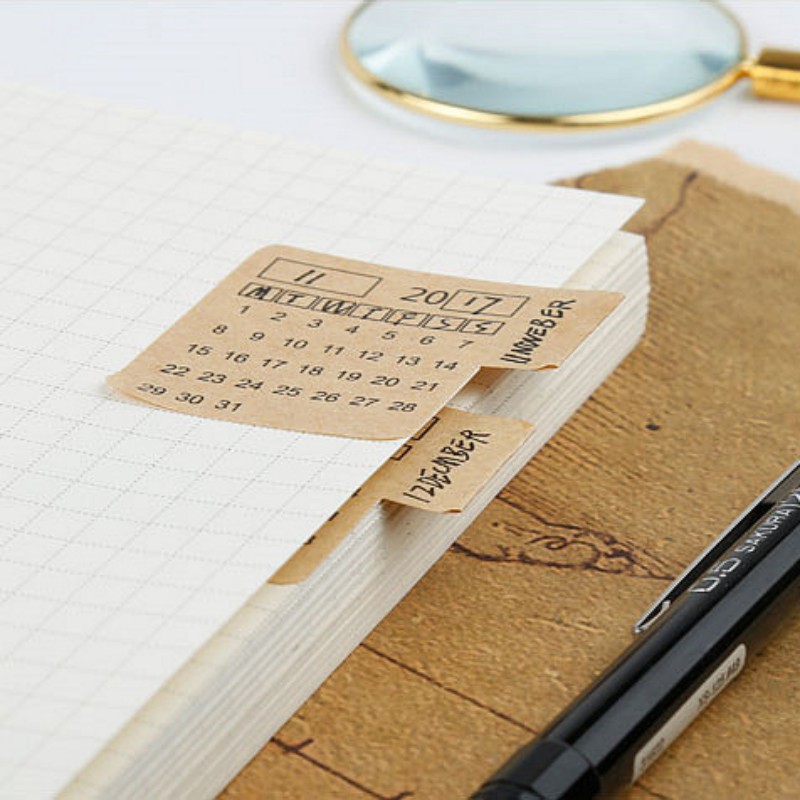 11 2017
M T W T F S S
1 2 3 4 5 6 7
8 9 10 11 12 13 14
15 16 17 18 19 20 21
22 23 24 25 26 27 28
29 30 31
12DECMBER
0.5 SAKURA